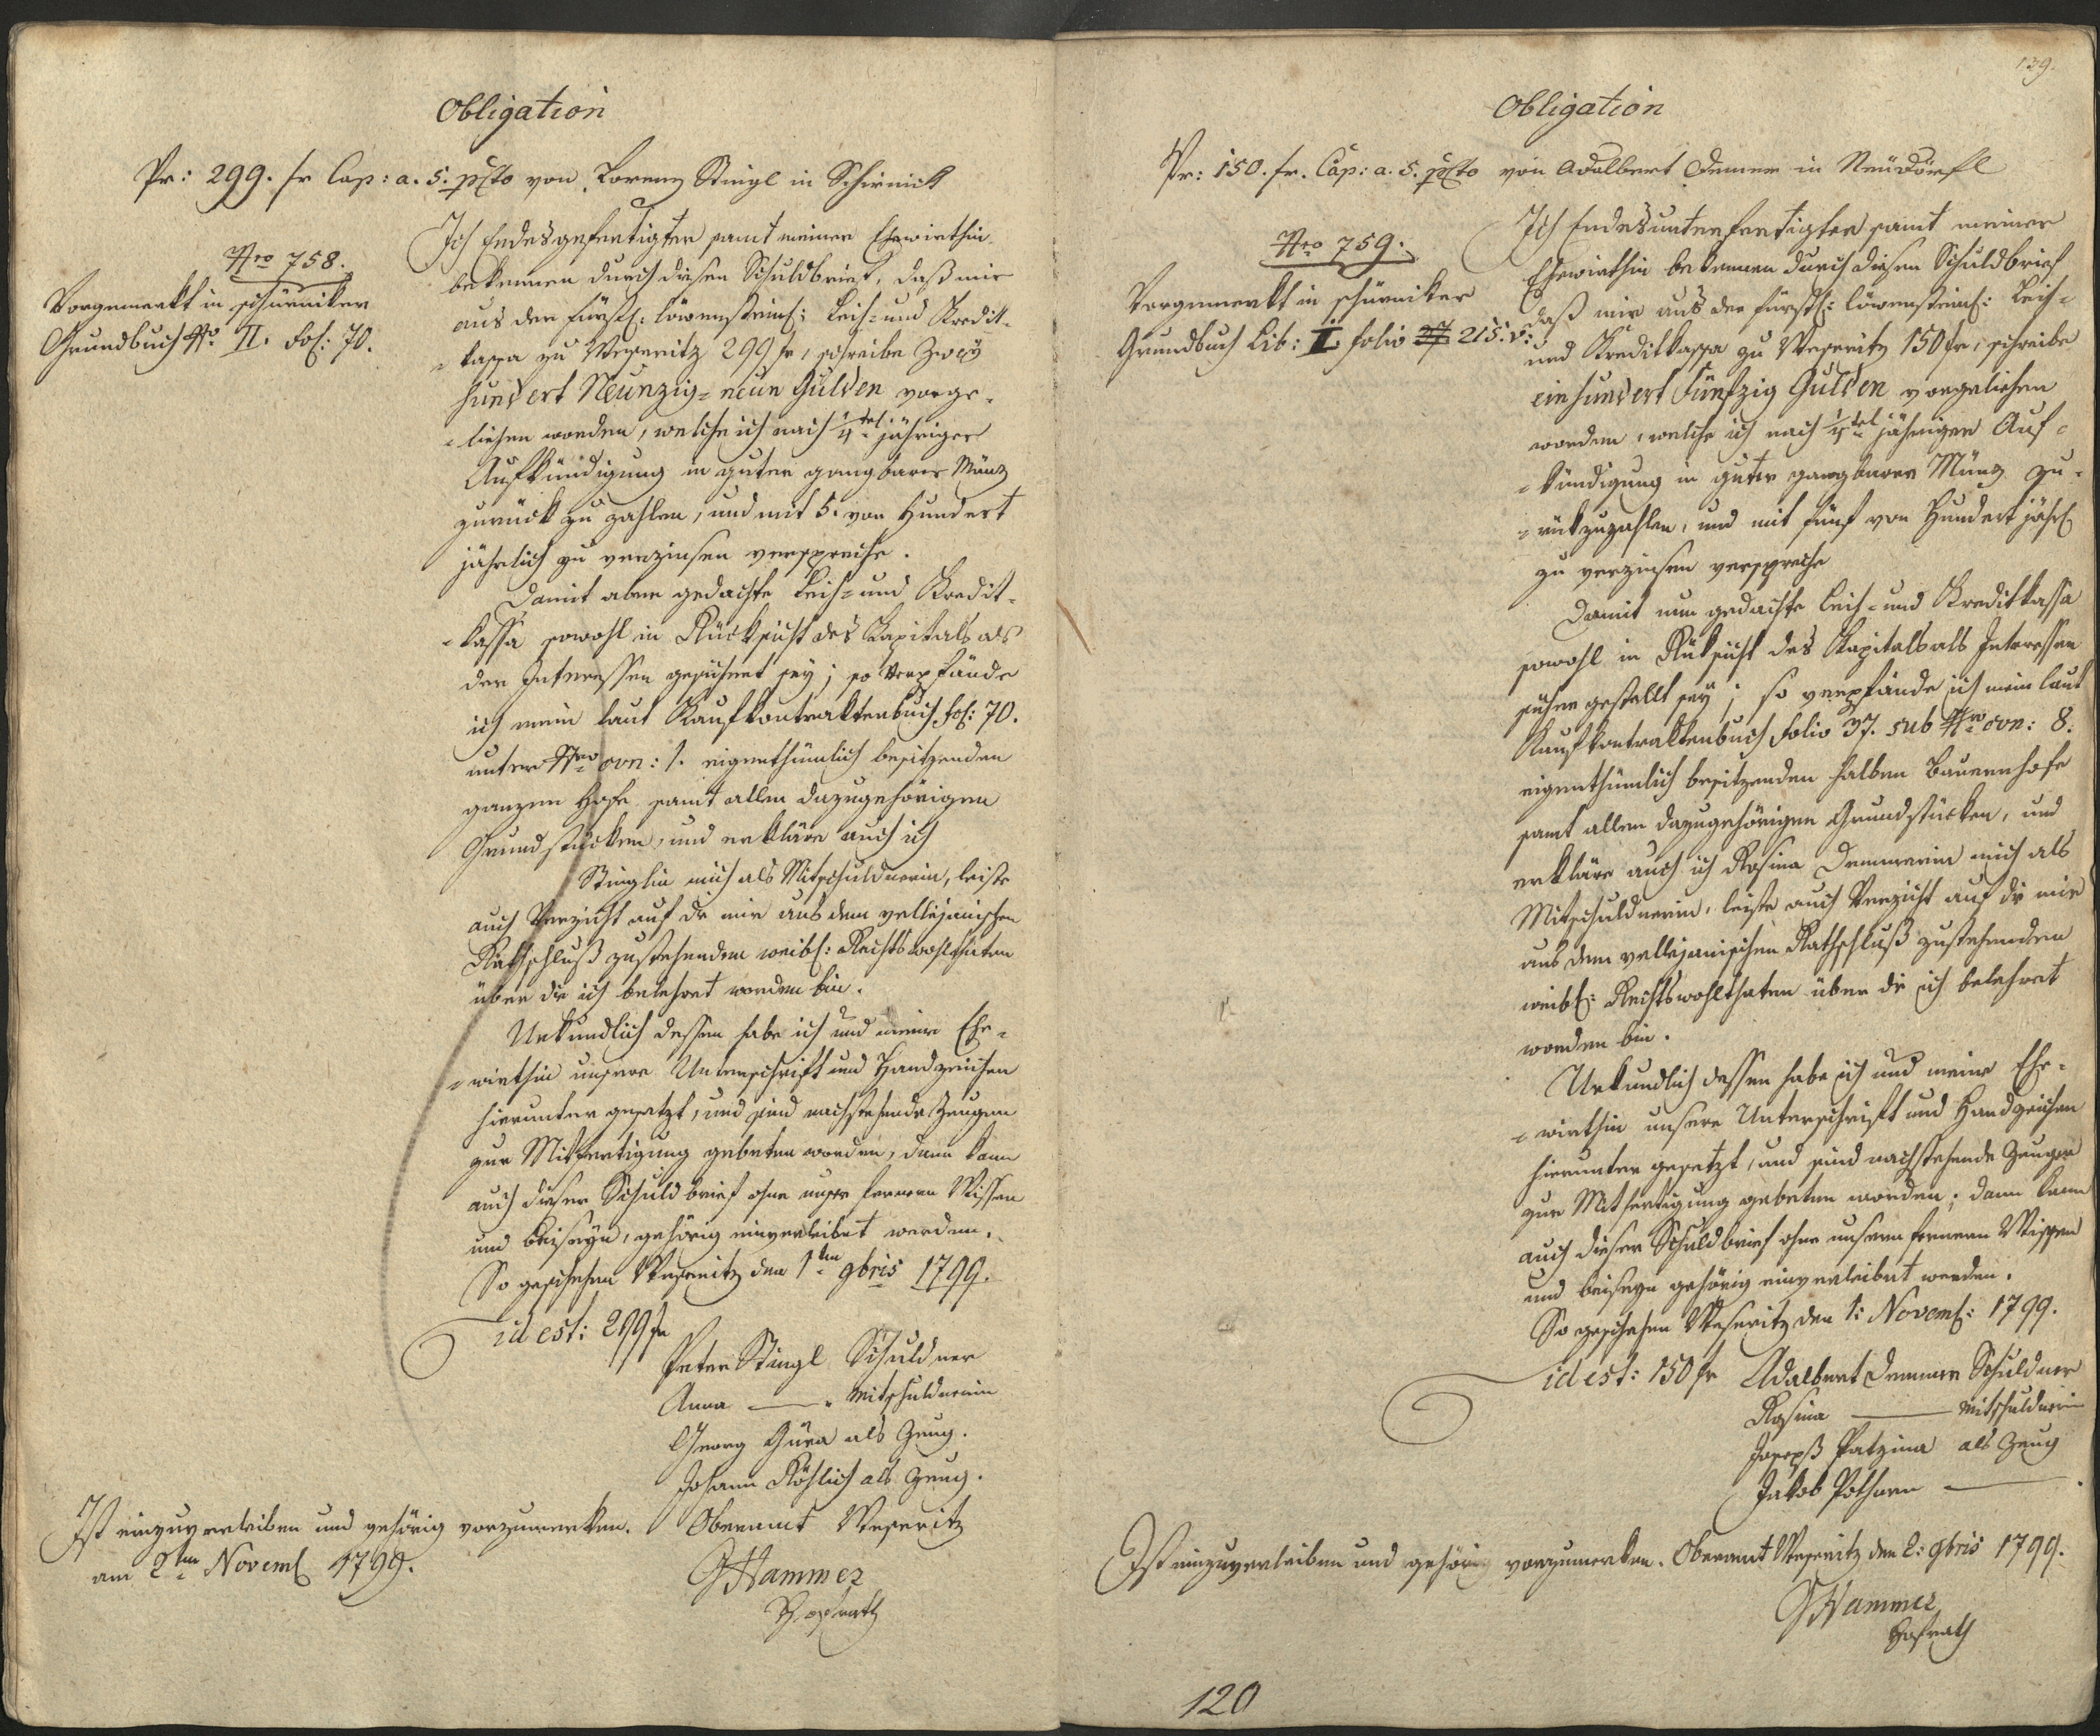 Obligation
Pr: 299. fr Cap: a. 5. pCto von Lorenz Stingl in Schirnick
Nro 758.
Vorgemerkt in schürniker
Grundbuch Nro II. Fol: 70.
Ich Endesgefertigter samt meiner Ehewirthin
bekennen durch diesen Schuldbrief, daß mir
aus der fürstl: löwensteinl: Leih- und Kredit-
-kassa zu Weseritz 299 fr, schreibe Zweÿ
hundert Neunzig-neun Gulden vorge-
-liehen worden, welche ich nach 1/4 tel jähriger
Aufkündigung in guter gangbarer Münz
zurück zu zahlen, und mit 5. von Hundert
jährlich zu verzinsen verspreche.
Damit aber gedachte Leih- und Kredit-
-kassa sowohl in Rücksicht des Kapitals als
der Interessen gesichert seÿ; so verpfände
ich mein laut Kaufkontraktenbuch fol: 70.
unter Nro con: 1. eigenthümlich besitzenden
ganzen Hofe samt allen dazugehörigen
Grundstücken, und erkläre auch ich
Stinglin mich als Mitschuldnerin, leiste
auch Verzicht auf die mir aus dem vellejanischen
Rathschluß zustehenden weibl: Rechtswohlthaten
über die ich belehret worden bin.
Urkundlich dessen habe ich und meine Ehe-
-wirthin unsere Unterschrift und Handzeichen
hierunter gesetzt, und sind nachstehende Zeugen
zur Mitfertigung gebeten worden, dann kann
auch dieser Schuldbrief ohne unsre fernern Wissen
und Beiseÿn, gehörig einverleibet werden.
So geschehen Weseritz den 1ten 9bris 1799.
id est: 299 fr
Peter Stingl Schuldner
Anna —— " Mitschuldnerin
Georg Güra als Zeug.
Johann Röhlich als Zeug.
Ist einzuverleiben und gehörig vorzumerken. Oberamt Weseritz
am 2ten Novembl 1799.
GHammer
Hofrath
139.
Obligation
Pr: 150. fr. Cap: a. 5. pCto von Adalbert Demer in Neüdörfl
Nro 759.
Vorgemerkt in schürniker
Grundbuch Lib: I. folio 27 215. v:
Ich Endesunterfertigter samt meiner
Ehewirthin bekennen durch diesen Schuldbrief
daß mir aus der fürstl: löwensteinl: Leih-
und Kreditkassa zu Weseritz 150 fr, schreibe
einhundert Fünfzig Gulden vorgeliehen
worden, welche ich nach 1/4 tel jähriger Auf-
-kündigung in guter gangbarer Münz zu-
-rükzuzahlen, und mit fünf von Hundert jährl
zu verzinsen verspreche
Damit nun gedachte Leih- und Kreditkassa
sowohl in Rüksicht des Kapitals als Interessen
sicher gestellt seÿ; so verpfände ich mein laut
Kaufkontraktenbuch folio 37. sub Nro con: 8.
eigenthümlich besitzenden halben Bauernhofe
samt allen dazugehörigen Grundstücken, und
erkläre auch ich Rosina Demmerin mich als
Mitschuldnerin, leiste auch Verzicht auf die mir
aus dem vellejanischen Rathschluß zustehenden
weibl: Rechtswohlthaten über die ich belehret
worden bin.
Urkundlich dessen habe ich und meine Ehe-
-wirthin unsere Unterschrift und Handzeichen
hierunter gesetzt, und sind nachstehende Zeugen
zur Mitfertigung gebeten worden; dann kann
auch dieser Schuldbrief ohne unsern fernern Wissen
und beiseyn gehörig einverleibet werden.
So geschehen Weseritz den 1: Novembl: 1799.
id est: 150 fr Adalbert Demmer Schuldner
Rosina —— Mitschuldnerin
Joseph Patzina als Zeug
Jakob Pöthner ——
Ist einzuverleiben und gehörig vorzumerken. Oberamt Weseritz den 2: 9bris 1799.
GHammer
Hofrath
120